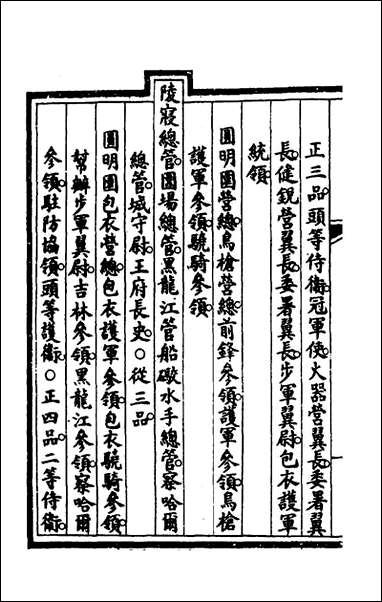 正三品頭等侍衞冠軍使火器營翼長委署翼
長健銳營翼長委署翼長步軍翼尉包衣護軍
統領
圓明園營總鳥槍營總前鋒叅領護軍叅領鳥槍
護軍叅領驍騎叅領
陵寢總管圍場總管黑龍江管船礮水手總管察哈爾
總管城守尉王府長史○從三品
圓明園包衣營總包衣護軍叅領包衣驍騎叅領
幫辦步軍翼尉吉林叅領黑龍江叅領察哈爾
叅領駐防協領頭等護衞○正四品二等侍衞